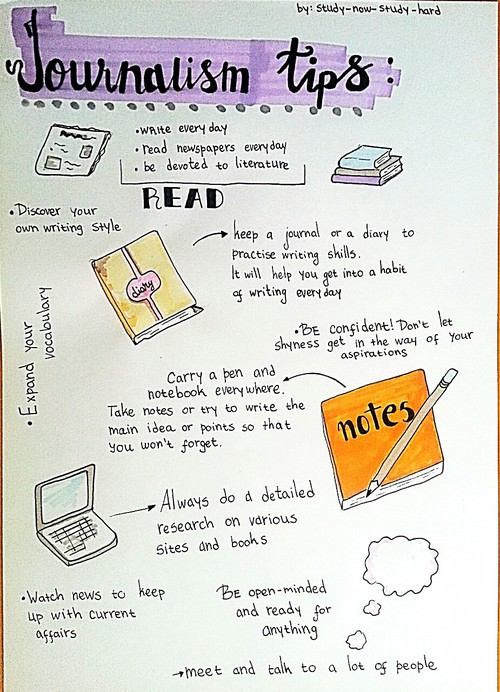 by: study-now-study-hard
Journalism tips:
• write every day
• read newspapers everyday
• be devoted to literature
READ
• Discover your
own writing style
diary
keep a journal or a diary to
practise writing skills.
It will help you get into a habit
of writing everyday
• Expand your
vocabulary
• BE confident! Don't let
shyness get in the way of your
aspirations
Carry a pen and
notebook everywhere.
Take notes or try to write the
main idea or points so that
you won't forget.
notes
Always do a detailed
research on various
sites and books
• Watch news to keep
up with current
affairs
BE open-minded
and ready for
anything
→ meet and talk to a lot of people